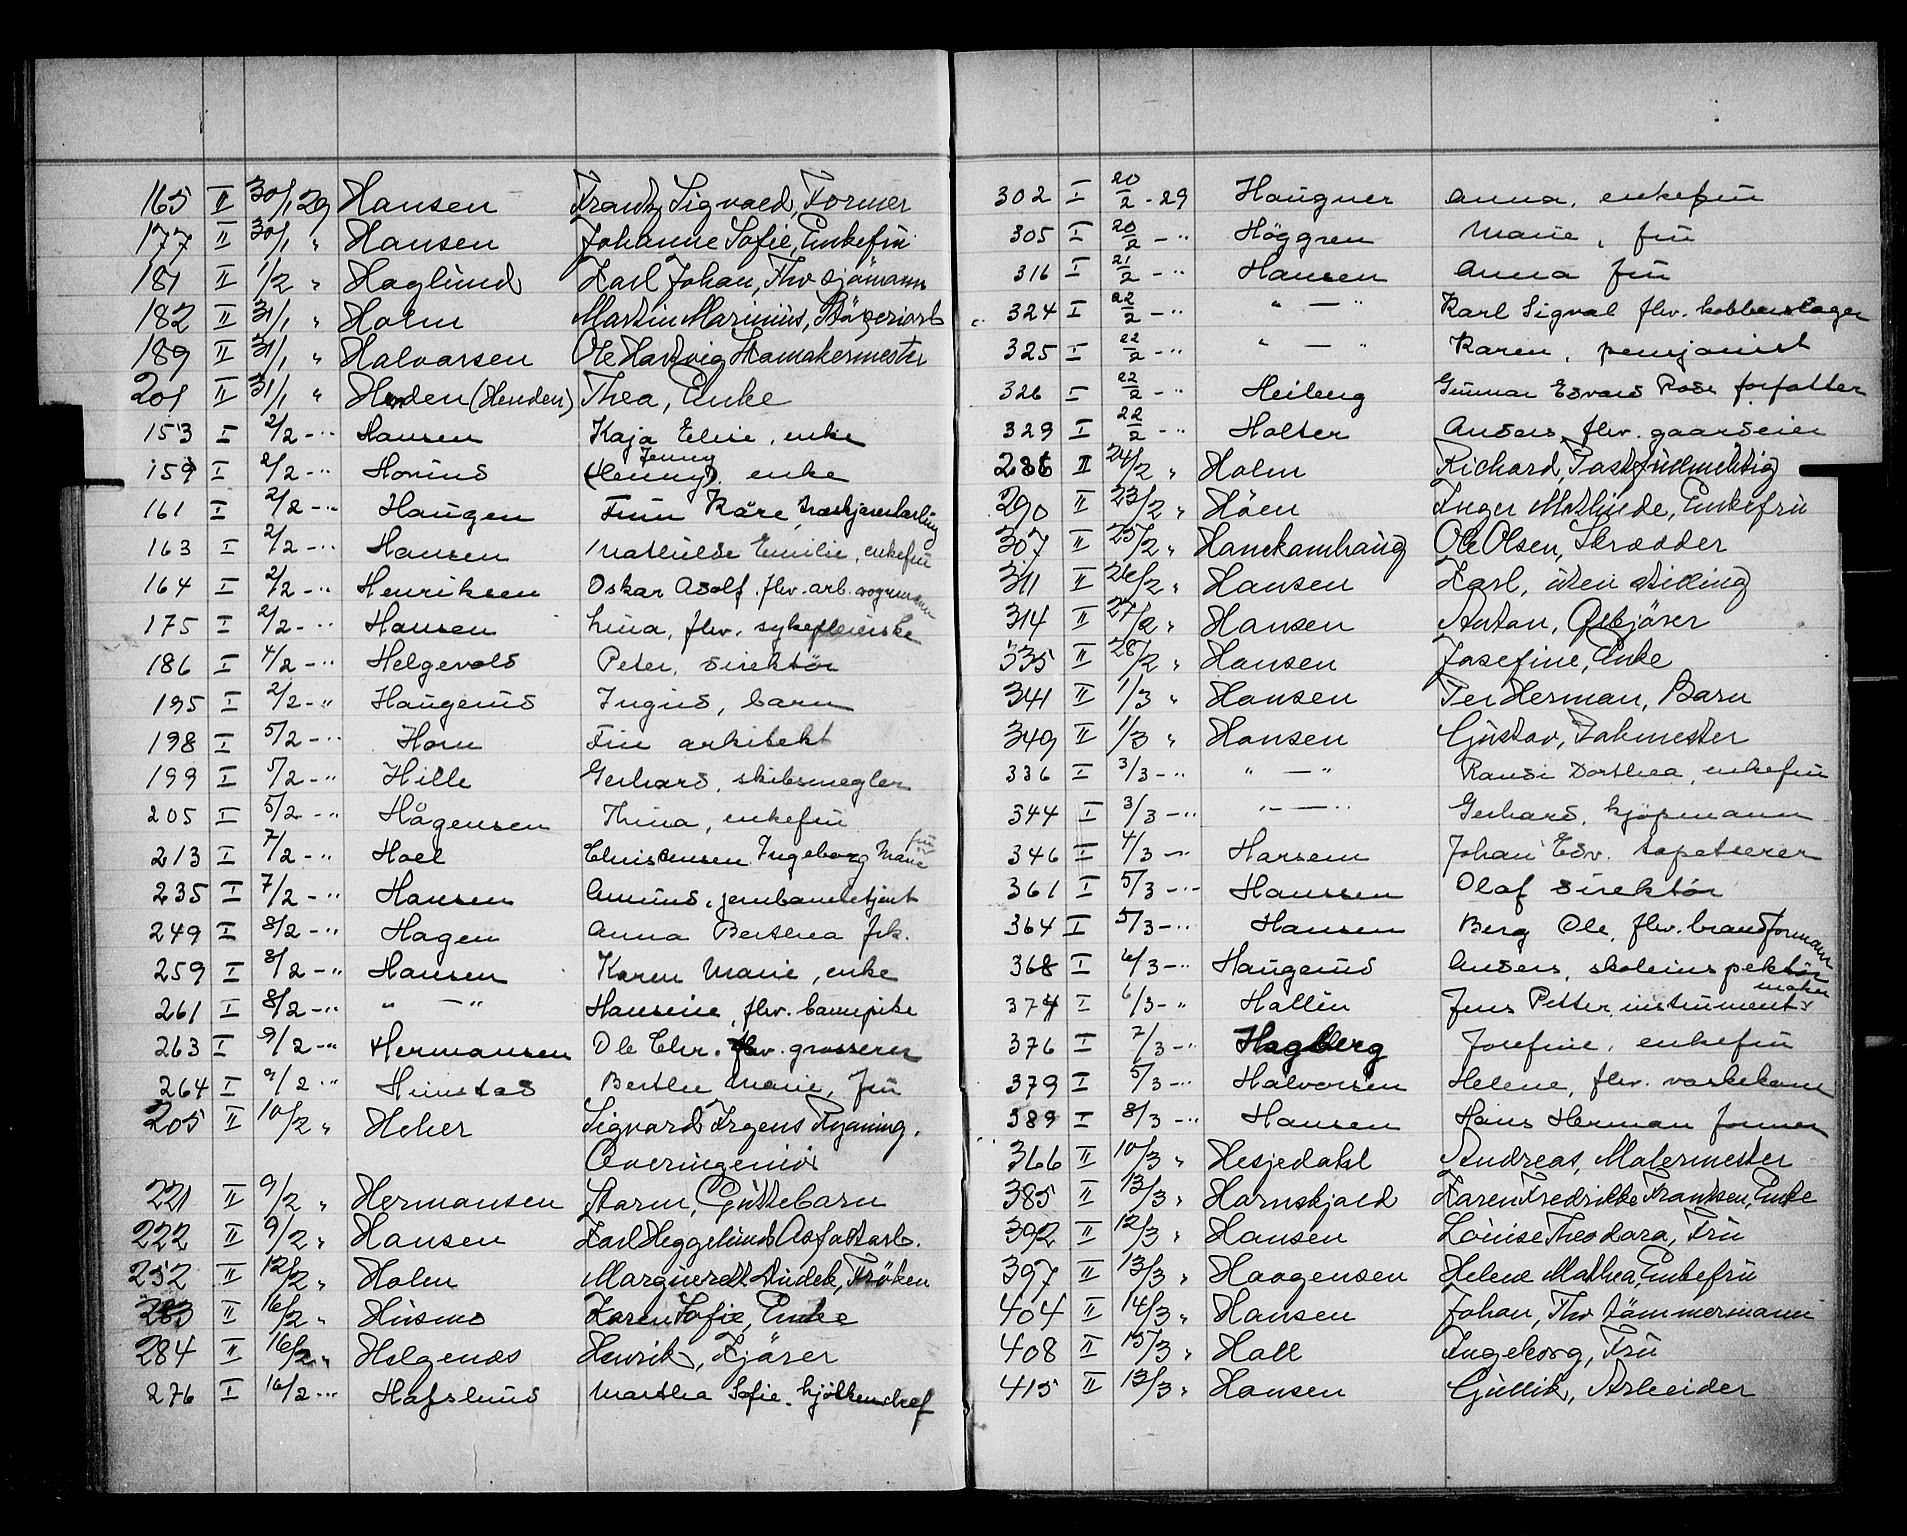 165 II 30/1 29 Hansen Frantz Sigvald, Former
177 II 30/1 " Hansen Johanne Sofie, Enkefru
181 II 1/2 " Haglund Karl Johan, Fhv sjömann
182 II 31/1 " Holm Martin Marinius, Bökeriarb
189 II 31/1 " Halvorsen Ole Hartvig Skomakermester
201 II 31/1 " Hoden (Henden) Thea, Enke
153 I 2/2 - " Hansen Kaja Elise, enke
159 I 2/2 - " Hovind Jenny (Henny), enke
161 I 2/2 - " Haugen Finn Kåre,
163 I 2/2 - " Hansen Mathilde Emilie, enkefru
164 I 2/2 - " Henriksen Oskar Adolf, fhv. arb. vognmann
175 I 2/2 - " Hansen Lina, fhv. sykepleierske
186 I 4/2 - " Helgevold Peter, direktör
195 I 2/2 - " Haugerud Ingrid, barn
198 I 5/2 - " Horn Fin arkitekt
199 I 5/2 - " Hille Gerhard, skibsmegler
205 I 5/2 - " Hågensen Thina, enkefru
213 I 7/2 - " Hoel Christensen Ingeborg Marie fru
235 I 7/2 - " Hansen Amund, jernbanebetjent
249 I 8/2 - " Hagen Anna Berthea frk.
259 I 8/2 - " Hansen Karen Marie, enke
261 I 8/2 - " " — " Hansine, fhv. barnepike
263 I 9/2 - " Hermansen Ole Chr. fhv. grosserer
264 I 9/2 - " Himstad Berthe Marie, fru
205 II 10/2 " Heher Sigvard Irgens Ryaning,
Overingeniör
221 II 9/2 " Hermansen Storm, Guttebarn
222 II 9/2 " Hansen Karl Heggelund Asfaltarb.
252 II 12/2 " Holm Margueret Lindek, Fröken
283 II 16/2 " Husmo Karen Sofie, Enke
284 II 16/2 " Helgenæs Henrik, Kjörer
276 I 16/2 - " Hafslund Martha Sofie,
302 I 20/2 - 29 Haugner Anna, enkefru
305 I 20/2 - " Höggren Marie, fru
316 I 21/2 - " Hansen Anna fru
324 I 22/2 - " " — " Karl Sigval fhv. kobberslager
325 I 22/2 - " " — " Karen, pensjonist
326 I 22/2 - " Heiberg Gunnar Edvard Rode forfatter
329 I 22/2 - " Holter Anders, fhv. gaardeier
286 II 24/2 " Holm Richard, Postfuldmektig
290 II 23/2 " Höen Inger Mathilde, Enkefru
307 II 25/2 " Hanekamhaug Ole Olsen, Skrædder
311 II 26/2 " Hansen Karl, uten stilling
314 II 27/2 " Hansen Anton, Ölkjörer
335 II 28/2 " Hansen Josefine, Enke
341 II 1/3 " Hansen Per Herman, Barn
349 II 1/3 " Hansen Gustav, Fakmester
336 I 3/3 - " " — " Randi Dorthea, enkefru
344 I 3/3 - " " — " Gerhard, kjöpmann
346 I 4/3 - " Hansen Johan Edv. tapetserer
361 I 5/3 - " Hanssen Olaf direktör
364 I 5/3 - " Hansen Berg Ole, fhv. brandformann
368 I 6/3 - " Haugerud Anders, skoleinspektör
374 I 6/3 - " Hallin Jens Petter, instrumentmaker
376 I 7/3 - " Hagberg Josefine, enkefru
379 I 5/3 - " Halvorsen Helene, fhv. vaskekone
389 I 8/3 - " Hansen Hans Herman former
366 II 10/3 " Hesjedahl Andreas, Malermester
385 II 13/3 " Harnskjold Karen Fredrikke Frantzen, Enke
392 II 12/3 " Hansen Louise Theodora, Fru
397 II 13/3 " Haagensen Helene Mathea, Enkefru
404 II 14/3 " Hansen Johan, Fhv tömmermann
408 II 15/3 " Hall Ingeborg, Fru
415 II 13/3 " Hansen Gullik, Arbeider